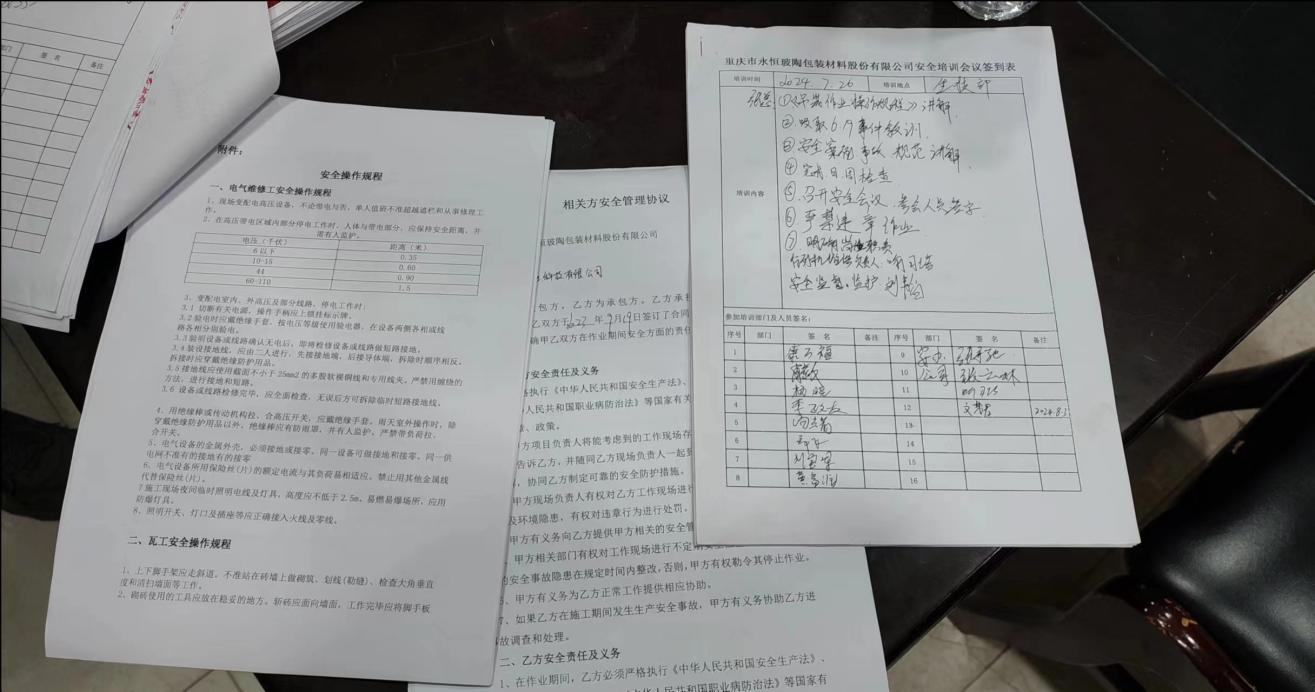 签 名
备注
附件：
安全操作规程
一、电气维修工安全操作规程
1、现场变配电高压设备，不论带电与否，单人值班不准超越遮栏和从事修理工
作。
2、在高压带电区域内部分停电工作时，人体与带电部分，应保持安全距离，并
需有人监护。
电压（千伏） 距离（米）
6以下 0.35
10-15 0.60
44 0.90
60-110 1.5
3、变配电室内、外高压及部分线路，停电工作时：
3.1 切断有关电源，操作手柄应上锁挂标示牌。
3.2验电时应戴绝缘手套，按电压等级使用验电器，在设备两侧各相或线
路各相分别验电。
3.3验明设备或线路确认无电后，即将检修设备或线路做短路接地。
3.4装设接地线，应由二人进行，先接接地端，后接导体端，拆除时顺序相反。
拆接时应穿戴绝缘防护用品。
3.5接地线应使用截面不小于25mm2的多股软裸铜线和专用线夹，严禁用缠绕的
方法，进行接地和短路。
3.6 设备或线路检修完毕，应全面检查，无误后方可拆除临时短路接地线。
4、用绝缘棒或传动机构拉、合高压开关，应戴绝缘手套。雨天室外操作时，除
穿戴绝缘防护用品以外，绝缘棒应有防雨罩，并有人监护。严禁带负荷拉、
合开关。
5、电气设备的金属外壳，必须接地或接零，同一设备可做接地和接零，同一供
电网不准有的接地有的接零
6、电气设备所用保险丝(片)的额定电流与其负荷易相适应。禁止用其他金属线
代替保险丝(片)。
7施工现场夜间临时照明电线及灯具，高度应不低于2.5m，易燃易爆场所，应用
防爆灯具。
8、照明开关、灯口及插座等应正确接入火线及零线。
二、瓦工安全操作规程
1、上下脚手架应走斜道。不准站在砖墙上做砌筑、划线(勒缝)、检查大角垂直
度和清扫墙面等工作。
2、砌砖使用的工具应放在稳妥的地方。斩砖应面向墙面，工作完毕应将脚手板
相关方安全管理协议
玻陶包装材料股份有限公司
科技有限公司
包方，乙方为承包方。乙方承
乙双方于2023年9月19日签订了合同
确甲乙双方在作业期间安全方面的责任
方安全责任及义务
格执行《中华人民共和国安全生产法》、
人民共和国职业病防治法》等国家有关
、政策。
方项目负责人将能考虑到的工作现场存
告诉乙方，并随同乙方现场负责人一起到
，协同乙方制定可靠的安全防护措施。
甲方现场负责人有权对乙方工作现场进行
及环境隐患，有权对违章行为进行处罚。
甲方有义务向乙方提供甲方相关的安全管
甲方相关部门有权对工作现场进行不定
的安全事故隐患在规定时间内整改，否则，甲方有权勒令其停止作业。
、甲方有义务为乙方正常工作提供相应协助。
7、如果乙方在施工期间发生生产安全事故，甲方有义务协助乙方进
故调查和处理。
二、乙方安全责任及义务
1、在作业期间，乙方必须严格执行《中华人民共和国安全生产法》、
华人民共和国职业病防治法》等国家有
重庆市永恒玻陶包装材料股份有限公司安全培训会议签到表
培训时间 2024.7.26 培训地点
培训内容
①《吊装作业操作规程》讲解
②.吸取6.9事件教训.
③安全案例事故 规范 讲解
④ 完善日.周检查
⑤.召开安全会议.参会人员签字
⑥ 严禁违章作业
⑦ 明确岗位职责
安全监督.监护 到岗
参加培训部门及人员签名：
序号 部门 签 名 备注 序号 部门 签 名 备注
1 9 安办
2 10
3 杨 11
4 李 12 2024.8.
5 13
6 14
7 15
8 16